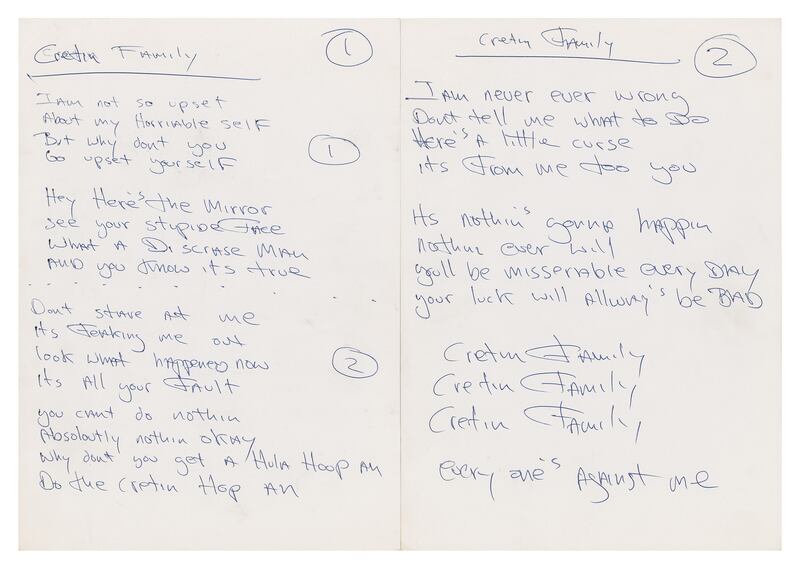 Cretin Family
1
I Am not so upset
About my Horriable self
But why dont you
Go upset yourself
1
Hey Here's the Mirror
see your stupide Face
What A Discrase Man
And you know its true
Dont stare at me
its Freaking me out
look what happened now
its All your Fault
2
you cant do nothin
Absoloutly nothin okay
Why dont you get A Hula Hoop An
Do the cretin Hop An
Cretin Family
2
I Am never ever wrong
Dont tell me what to Do
Here's A little curse
its From me too you
Its nothin's gonna happin
nothin ever will
youll be misserable every DAY
your luck will Allway's be BAD
Cretin Family
Cretin Family
Cretin Family
every one's Against me